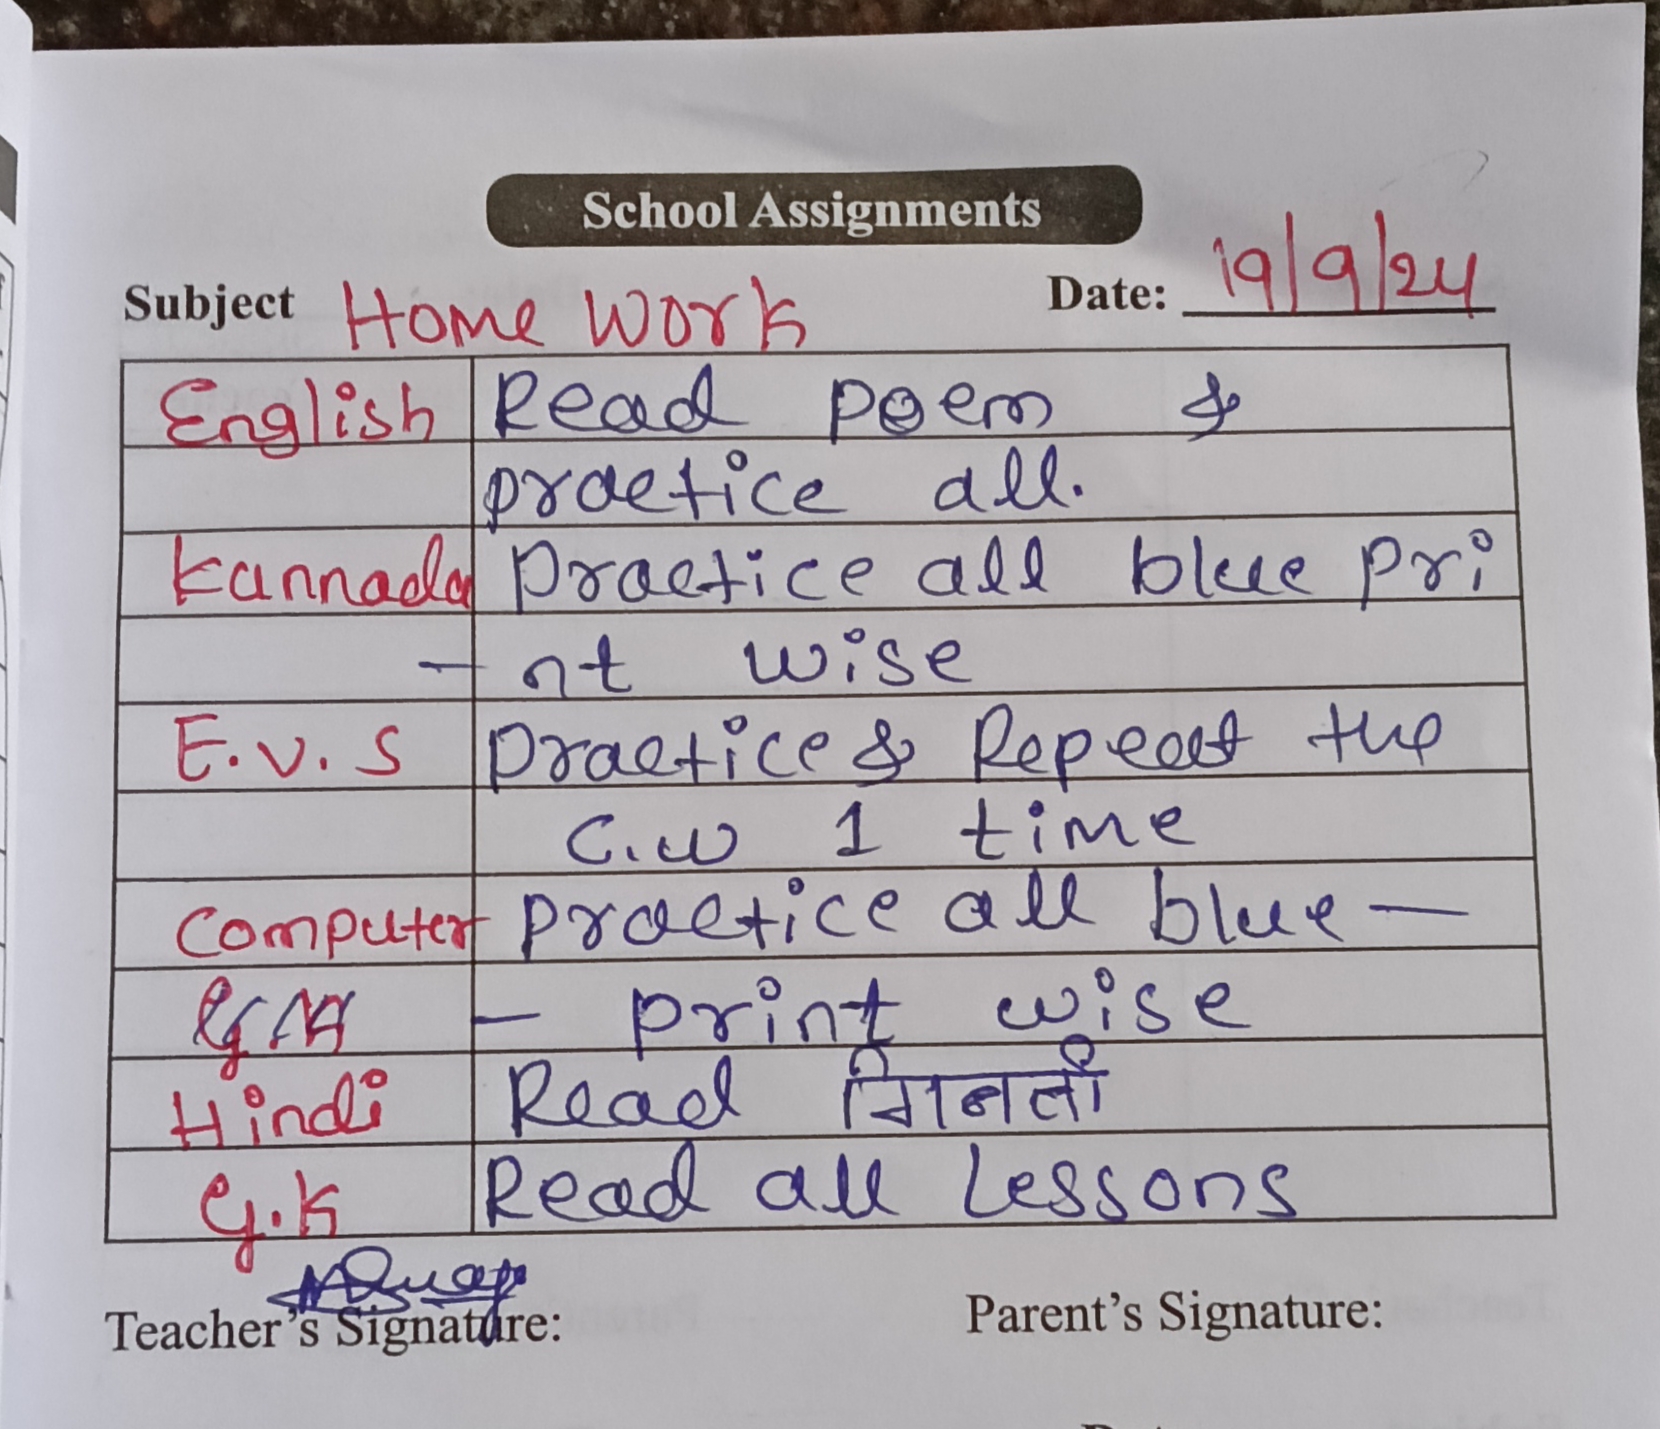 School Assignments
Subject Home Work Date: 19/9/24
English Read poem &
practice all.
Kannada Practice all blue Pri
- nt wise
E.V.S Practice & Repeat the
C.W 1 time
Computer Practice all blue -
- print wise
Hindi Read गिनती
G.K Read all Lessons
Teacher's Signature: Parent's Signature: